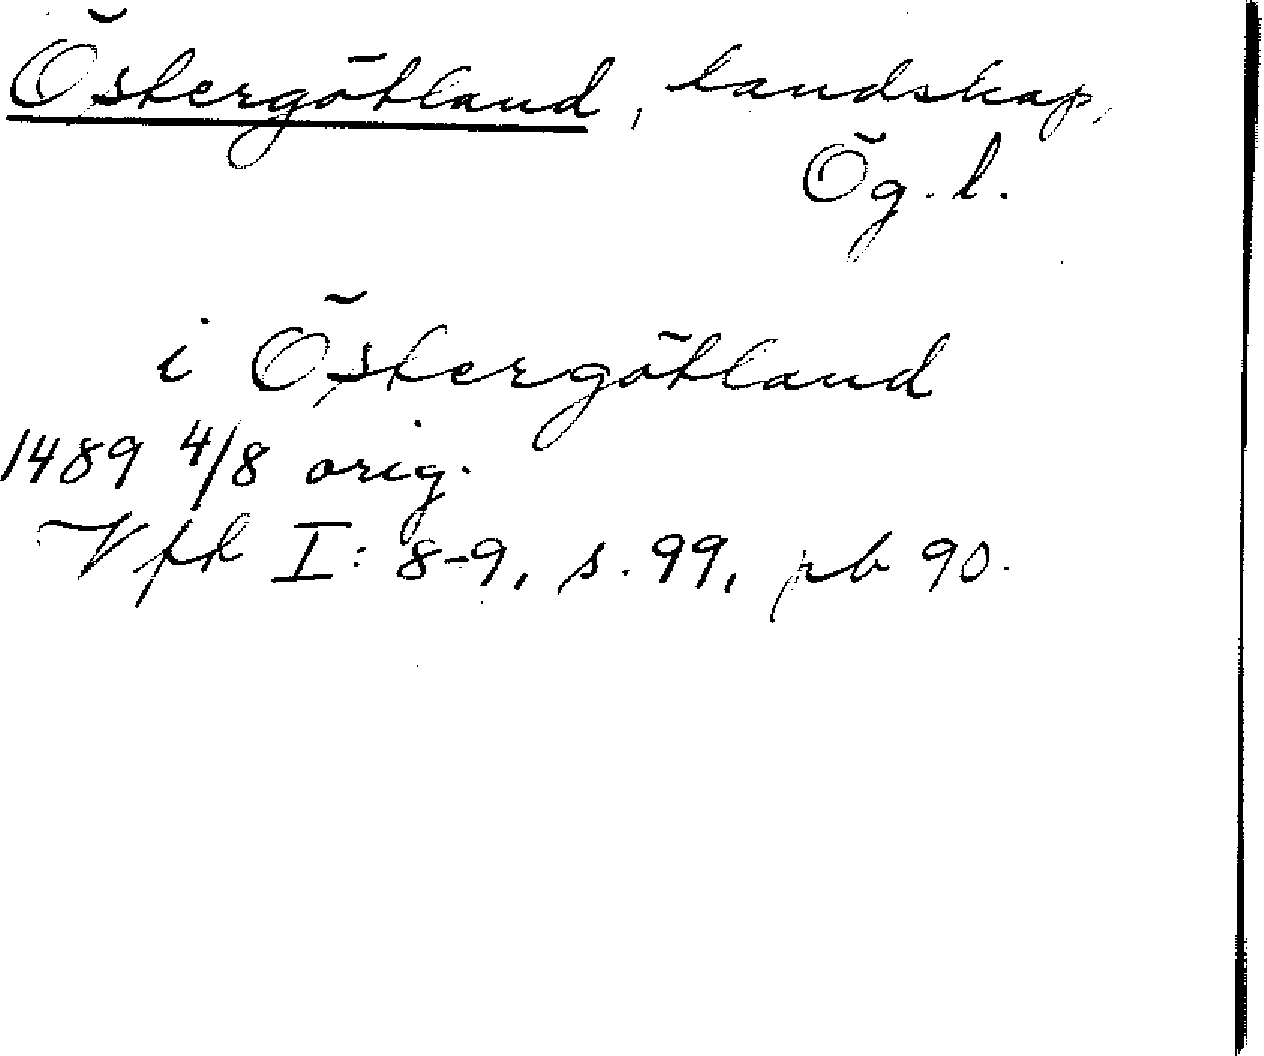 Östergötland, landskap,
Ög. l.
i Östergötland
1489 4/8 orig.
Vfk I: 8-9, s. 99, rb 90.